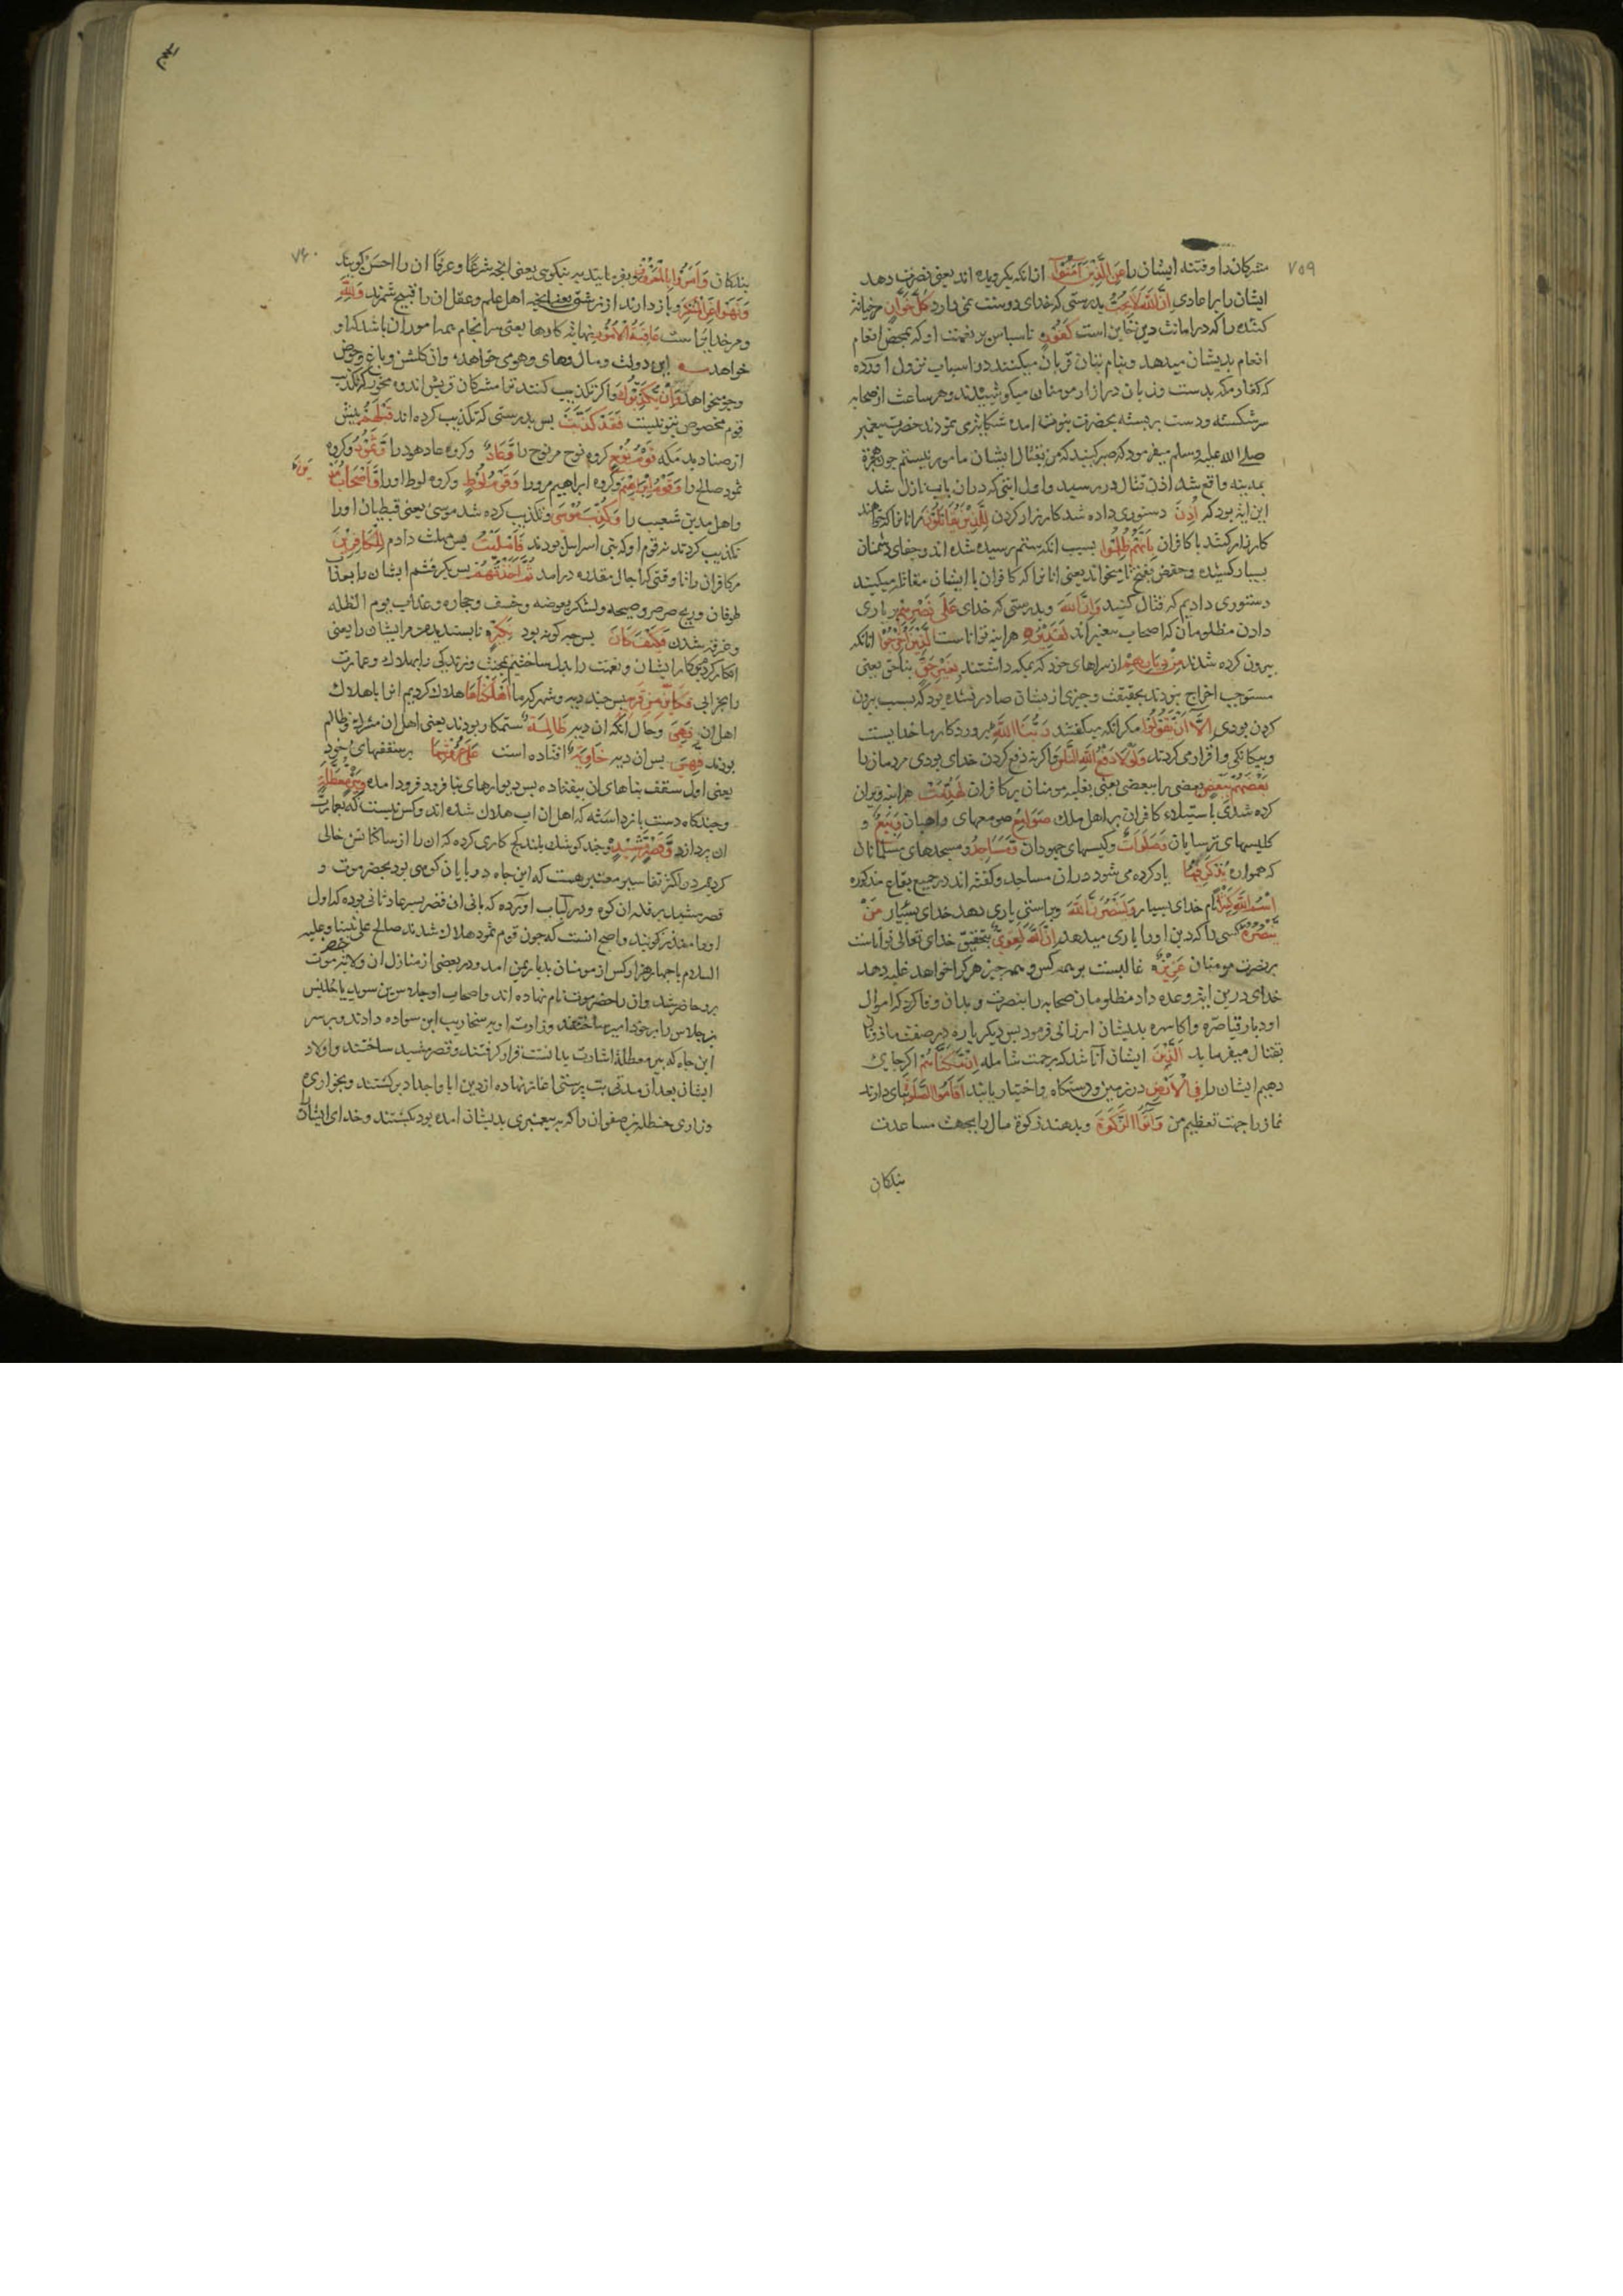 ۷۵۹
مشرکان را و فتنه ایشان را عَنِ الَّذِینَ آمَنُوا از آنانکه بگرویده اند یعنی نصرت دهد
ایشان را بر اعادی إِنَّ اللَّهَ لَا یُحِبُّ بدرستی که خدای دوست نمی دارد کُلَّ خَوَّانٍ هر خیانة
کننده را که در امانت دین خاین است کَفُورٍ ناسپاس بر نعمت او که بمحض انعام
انعام بدیشان میدهد و بنام بتان قربان میکنند در اسباب نزول اورده
که کفار مکه بدست و زبان در ازار مومنان میکوشیدند و هر ساعت از صحابه
سر شکسته و دست بر بسته بحضرت نبوت امده شکایتی نمودند حضرت پیغمبر
صلے الله علیه وسلم میفرمود که صبر کنید که من بقتال ایشان مامور نیستم چون هجرة
بمدینه واقع شد اذن قتال در رسید و اول ایتی که در ان باب نازل شد
این ایة بود که أُذِنَ دستوری داده شد کارزار کردن لِلَّذِینَ یُقَاتَلُونَ مر انانرا که خواهند
کارزار کنند با کافران بِأَنَّهُمْ ظُلِمُوا بسبب انکه ستم رسیده شده اند و جفای دشمنان
بسیار کشیده و حفص بفتح تا میخواند یعنی انانرا که کافران با ایشان مقاتله میکنند
دستوری دادیم که قتال کنید وَإِنَّ اللَّهَ و بدرستی که خدای عَلَی نَصْرِهِمْ بر یاری
دادن مظلومان که اصحاب پیغبر اند لَقَدِیرٌ هر اینه تواناست الَّذِینَ أُخْرِجُوا انانکه
بیرون کرده شدند مِنْ دِیَارِهِمْ از سراهای خود که بمکه داشتند بِغَیْرِ حَقٍّ بناحق یعنی
مستوجب اخراج نبودند بحقیقت و چیزی از یشان صادر نشده بود که بسبب بیرون
کردن بودی إِلَّا أَنْ یَقُولُوا مکر انکه میکفتند رَبُّنَا اللَّهُ پروردکار ما خدایست
و بیکانکی وی اقرار می کردند وَلَوْلَا دَفْعُ اللَّهِ النَّاسَ و اکر نه دفع کردن خدای بودی مردمان را
بَعْضَهُمْ بِبَعْضٍ بعضی را ببعضی یعنی بغلبه مومنان بر کافران لَهُدِّمَتْ هر اینه ویران
کرده شدی باستیلاء کافران بر اهل ملک صَوَامِعُ صومعهای راهبان وَبِیَعٌ و
کلیسهای ترسایان وَصَلَوَاتٌ و کنیسهای جهودان وَمَسَاجِدُ و مسجدهای مسلمانان
که همواره یُذْکَرُ فِیهَا یاد کرده می شود در ان مساجد و کفته اند در جمیع بقاع مذکوره
اسْمُ اللَّهِ کَثِیرًا نام خدای بسیار وَلَیَنْصُرَنَّ اللَّهُ و براستی یاری دهد خدای بسیار مَنْ
یَنْصُرُهُ کسی را که دین او را یاری میدهد إِنَّ اللَّهَ لَقَوِیٌّ بتحقیق خدای تعالی تواناست
بر نصرت مومنان عَزِیزٌ غالبست بر همه کس و همه چیز هر کرا خواهد غلبه دهد
خدای درین ایة وعده داد مظلومان صحابه را بنصرت و بدان وفا کرد که اموال
و دیار قیاصره و اکاسره بدیشان ارزانی فرمود پس دیکر باره در صفت ماذونان
بقتال میفرماید الَّذِینَ ایشان آنانند که برحمت شامله إِنْ مَکَّنَّاهُمْ اکر جای
دهیم ایشان را فِی الْأَرْضِ در زمین و دستکاه و اختیار یابند أَقَامُوا الصَّلَوةَ بپای دارند
نماز را جهت تعظیم من وَآتَوُا الزَّکَوةَ و بدهند زکوة مال را بجهت مساعدت
بندکان
۷۶۰
بندکان وَأَمَرُوا بِالْمَعْرُوفِ و بفرمایند به نیکوی یعنی انچه شرعًا و عرفًا ان را احسن کویند
وَنَهَوْا عَنِ الْمُنْکَرِ و باز دارند از زشتی یعنی انچه اهل علم و عقل ان را قبیح شمرند وَلِلَّهِ
و مر خدایراست عَاقِبَةُ الْأُمُورِ نهایة کارها یعنی سرانجام همه امور ان باشد که او
خواهد این دولت و مال وهای وهوی خواهد وان کلشن و باغ وحوض
وجوی خواهد وَإِنْ یُکَذِّبُوکَ و اکر تکذیب کنند ترا مشرکان قریش اندوه مخور که تکذیب
قوم مخصوص بتو نیست فَقَدْ کَذَّبَتْ پس بدرستی که تکذیب کرده اند قَبْلَهُمْ پیش
از صنادید مکه قَوْمُ نُوحٍ کروه نوح مر نوح را وَعَادٌ و کروه عاد هود را وَثَمُودُ و کروه
ثمود صالح را وَقَوْمُ إِبْرَاهِیمَ و کروه ابراهیم مر او را وَقَوْمُ لُوطٍ و کروه لوط او را وَأَصْحَابُ مَدْیَنَ
و اهل مدین شعیب را وَکُذِّبَ مُوسَی و تکذیب کرده شد موسی یعنی قبطیان او را
تکذیب کردند نه قوم او که بنی اسرایل بودند فَأَمْلَیْتُ پس مهلت دادم لِلْکَافِرِینَ
مر کافران را تا وقتی که اجال مقدره درامد ثُمَّ أَخَذْتُهُمْ پس بکرفتم ایشان را بعذاب
طوفان و ریح صرصر و صیحه و لشکر بعوضه و خسف و حجاره و عذاب یوم الظله
و غرقه شدن فَکَیْفَ کَانَ پس چه کونه بود نَکِیرِ ناپسندیدن من مر ایشان را یعنی
انکار کردیم کار ایشان و نعمت را بدل ساختیم بمحنت و زندکی را بهلاک و عمارت
را بخرابی فَکَأَیِّنْ مِنْ قَرْیَةٍ پس چند دیه و شهر که ما أَهْلَکْنَاهَا هلاک کردیم انرا باهلاک
اهل ان وَهِیَ و حال انکه ان دیه ظَالِمَةٌ ستمکار بودند یعنی اهل ان مشرک و ظالم
بودند فَهِیَ پس ان دیه خَاوِیَةٌ افتاده است عَلَی عُرُوشِهَا بر سقفهای خود
یعنی اول سقف بناهای ان بیفتاده پس دیوارهای بنا فرود فرود امده وَبِئْرٍ مُعَطَّلَةٍ
و چند چاه دست باز داشته که اهل ان اب هلاک شده اند و کس نیست که بعمارت
ان پردازد وَقَصْرٍ مَشِیدٍ و چند کوشک بلند کج کاری کرده که ان را از ساکنانش خالی
کردیم در اکثر تفاسیر معتبر هست که این چاه در پایان کوهی بود بحضرموت و
قصر مشید بر قله ان کوه و در لباب اورده که بانی ان قصر پسر عاد ثانی بوده که اول
او را منذر کویند و اصح انست که چون قوم ثمود هلاک شدند صالح علی نبینا وعلیه
السلام با چهار هزار کس از مومنان بدیار یمن امد و در بعضی از منازل ان ولایة موت
برو حاضر شد و ان را حضرموت نام نهاده اند و اصحاب او جلاس بن سوید یا جلیس
بن جلاس را بر خود امیر ساختند و وزارت او به سنحاریب ابن سواده دادند و بر سر
این چاه که بئر معطله اشارت بدانست قرار کرفتند و قصر مشید ساختند و اولاد
ایشان بعد از مدتی بت پرستی اغاز نهاده از دین ابا و اجداد برکشتند و بخواری
و زاری حنظله بن صفوان را که به پیغمبری بدیشان امده بود بکشتند و خدای ایشان